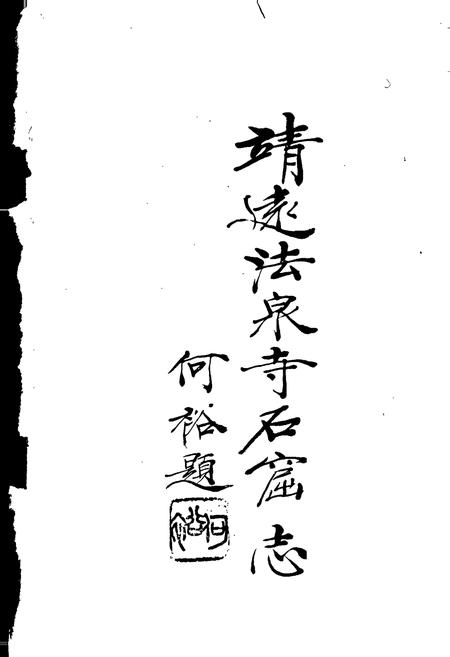 靖遠法泉寺石窟志
何裕題